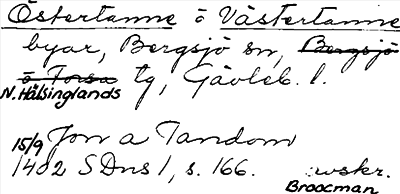 Östertanne o Västertanne
byar, Bergsjö sn, Bergsjö
o Forsa tg, Gävleb. l.
N. Hälsinglands
15/9 Jon a Tandom
1402 SDns 1, s. 166. :wskr.
Broocman